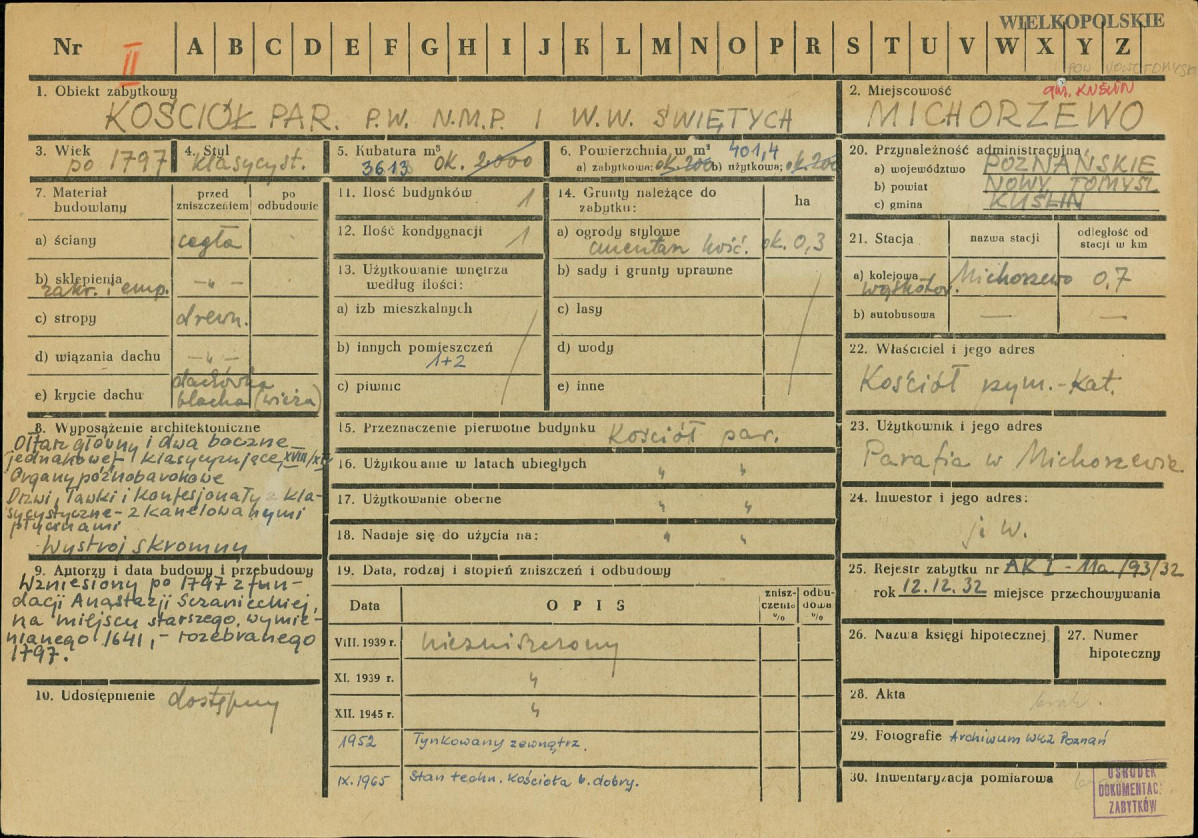 WIELKOPOLSKIE
Nr II A B C D E F G H I J K L M N O P R S T U V W X Y Z
POW. NOWOTOMYSKI
1. Obiekt zabytkowy
KOŚCIÓŁ PAR. P.W. N.M.P. I W.W. ŚWIĘTYCH
2. Miejscowość
gm. KUŚLIN
MICHORZEWO
3. Wiek
po 1797
4. Styl
klasycyst.
5. Kubatura m³
3613 ok. 2000
6. Powierzchnia w m² 401,4
a) zabytkowa; ok. 200 b) użytkowa; ok. 200
20. Przynależność administracyjna
a) województwo POZNAŃSKIE
b) powiat NOWY TOMYŚL
c) gmina KUŚLIN
7. Materiał budowlany
przed zniszczeniem
po odbudowie
a) ściany cegła
b) sklepienia -„-
zakr. i emp.
c) stropy drewn.
d) wiązania dachu -„-
e) krycie dachu dachówka
blacha (wieża)
11. Ilość budynków 1
12. Ilość kondygnacji 1
13. Użytkowanie wnętrza
według ilości:
a) izb mieszkalnych
b) innych pomieszczeń
1+2
c) piwnic
14. Grunty należące do
zabytku:
ha
a) ogrody stylowe
cmentarz kość. ok. 0,3
b) sady i grunty uprawne
c) lasy
d) wody
e) inne
21. Stacja
nazwa stacji
odległość od
stacji w km
a) kolejowa Michorzewo 0,7
wąskotor.
b) autobusowa — —
22. Właściciel i jego adres
Kościół rzym.-kat.
8. Wyposażenie architektoniczne
Ołtarz główny i dwa boczne
jednakowe, klasycyzujące, XVIII/XIX
Organy późnobarokowe
Drzwi, ławki i konfesjonały z kla-
sycystyczne - z kanelowanymi
płycinami
Wystrój skromny
15. Przeznaczenie pierwotne budynku Kościół par.
16. Użytkowanie w latach ubiegłych „ „
17. Użytkowanie obecne „ „
18. Nadaje się do użycia na: „ „
23. Użytkownik i jego adres
Parafia w Michorzewie
24. Inwestor i jego adres:
j. w.
9. Autorzy i data budowy i przebudowy
Wzniesiony po 1797 z fun-
dacji Anastazji Sczanieckiej,
na miejscu starszego, wymie-
nianego 1641, - rozebranego
1797.
10. Udostępnienie dostępny
19. Data, rodzaj i stopień zniszczeń i odbudowy
Data
OPIS
znisz-
czenie
%
odbu-
dowa
%
VIII. 1939 r. niezniszczony
XI. 1939 r. „
XII. 1945 r. „
1952 Tynkowany zewnątrz.
IX. 1965 Stan techn. kościoła b. dobry.
25. Rejestr zabytku nr AK I - 11a/93/32
rok 12.12.32 miejsce przechowywania
26. Nazwa księgi hipotecznej
27. Numer
hipoteczny
28. Akta brak.
29. Fotografie Archiwum WKZ Poznań
30. Inwentaryzacja pomiarowa
OŚRODEK
DOKUMENTACJI
ZABYTKÓW